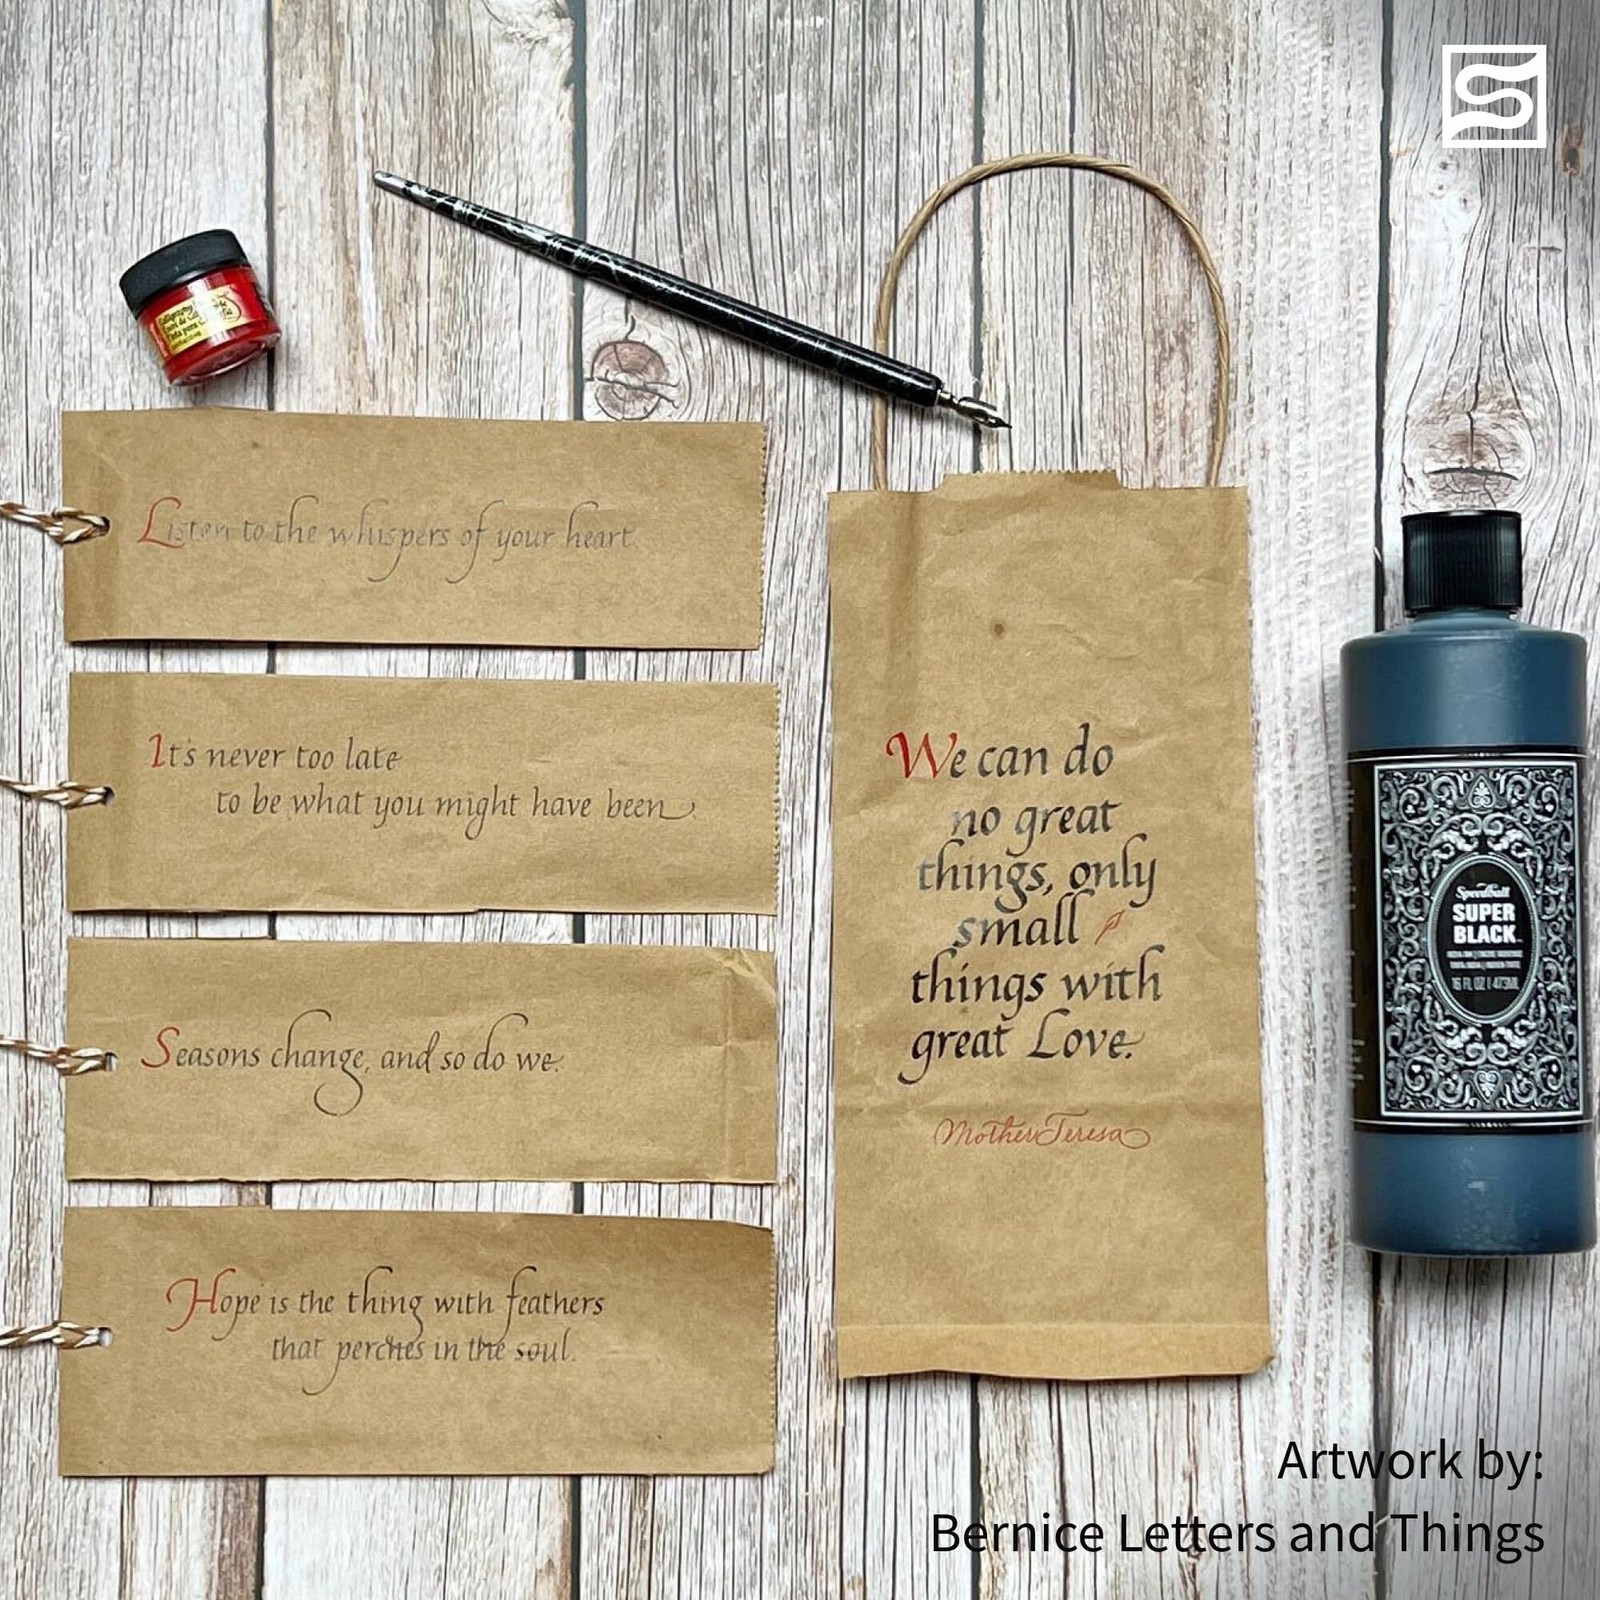 Listen to the whispers of your heart
It's never too late
to be what you might have been.
Seasons change, and so do we.
Hope is the thing with feathers
that perches in the soul.
We can do
no great
things, only
small
things with
great Love.
Mother Teresa
Speedball
SUPER
BLACK
16 FL OZ | 473ML
Artwork by:
Bernice Letters and Things